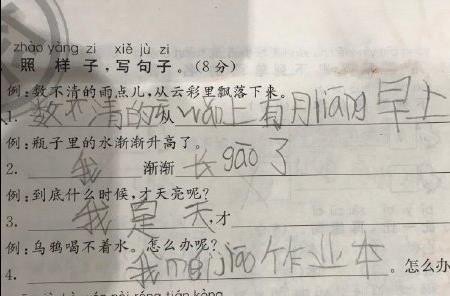 zhào yàng zi xiě jù zi
照 样 子，写句子。(8分)
例：数不清的雨点儿，从云彩里飘落下来。
1. 数不清的 从 上有月liàng早上
例：瓶子里的水渐渐升高了。
2. 我 渐渐 长gāo了
例：到底什么时候，才天亮呢？
3. 我是天，才
例：乌鸦喝不着水。怎么办呢？
4. 我mei jiāo作业本。怎么办